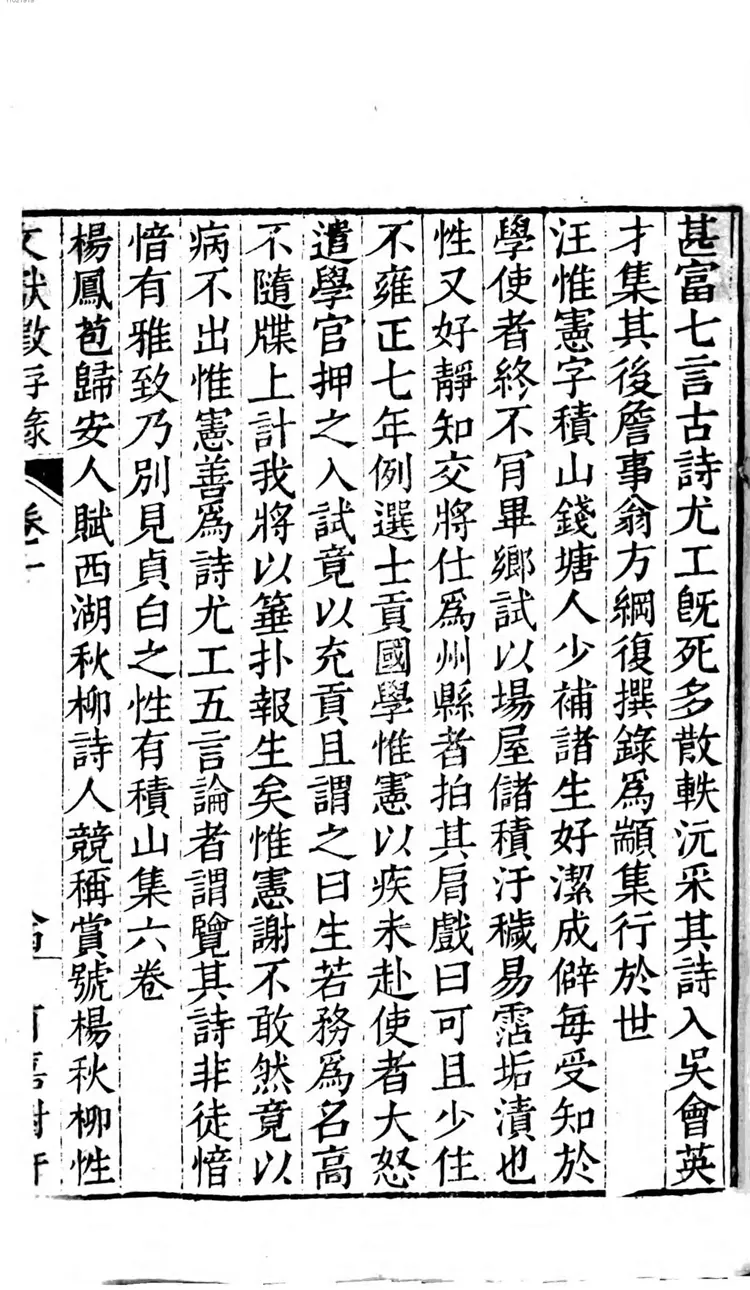 甚富七言古詩尤工旣死多散軼沅采其詩入吳會英
才集其後詹事翁方綱復撰錄爲顓集行於世
汪惟憲字積山錢塘人少補諸生好潔成僻每受知於
學使者終不肎畢鄉試以場屋儲積汙穢易霑垢漬也
性又好靜知交將仕爲州縣者拍其肩戲曰可且少住
不雍正七年例選士貢國學惟憲以疾未赴使者大怒
遣學官押之入試竟以充貢且謂之曰生若務爲名高
不隨牒上計我將以箠扑報生矣惟憲謝不敢然竟以
病不出惟憲善爲詩尤工五言論者謂覽其詩非徒愔
愔有雅致乃別見貞白之性有積山集六卷
楊鳳苞歸安人賦西湖秋柳詩人競稱賞號楊秋柳性
文獻徵存錄